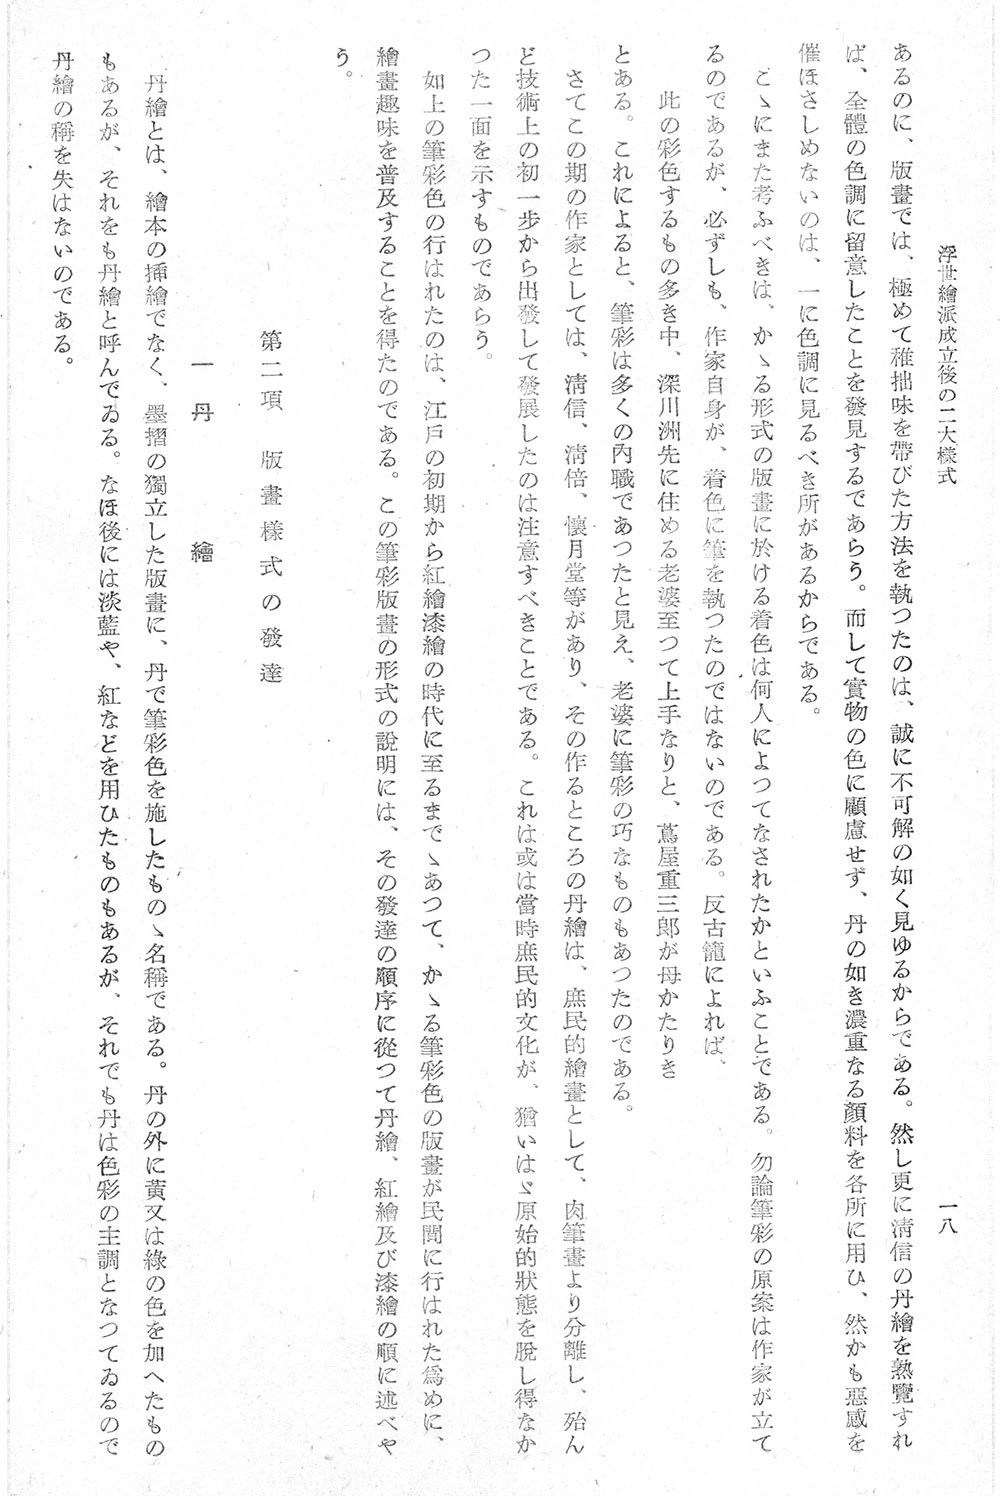 浮世繪派成立後の二大樣式
一八
あるのに、版畫では、極めて稚拙味を帶びた方法を執つたのは、誠に不可解の如く見ゆるからである。然し更に淸信の丹繪を熟覽すれ
ば、全體の色調に留意したことを發見するであらう。而して實物の色に顧慮せず、丹の如き濃重なる顏料を各所に用ひ、然かも惡感を
催ほさしめないのは、一に色調に見るべき所があるからである。
こゝにまた考ふべきは、かゝる形式の版畫に於ける着色は何人によつてなされたかといふことである。勿論筆彩の原案は作家が立て
るのであるが、必ずしも、作家自身が、着色に筆を執つたのではないのである。反古籠によれば、
此の彩色するもの多き中、深川洲先に住める老婆至つて上手なりと、蔦屋重三郎が母かたりき
とある。これによると、筆彩は多くの內職であつたと見え、老婆に筆彩の巧なものもあつたのである。
さてこの期の作家としては、淸信、淸倍、懷月堂等があり、その作るところの丹繪は、庶民的繪畫として、肉筆畫より分離し、殆ん
ど技術上の初一步から出發して發展したのは注意すべきことである。これは或は當時庶民的文化が、猶いはゞ原始的狀態を脫し得なか
つた一面を示すものであらう。
如上の筆彩色の行はれたのは、江戶の初期から紅繪漆繪の時代に至るまでゝあつて、かゝる筆彩色の版畫が民間に行はれた爲めに、
繪畫趣味を普及することを得たのである。この筆彩版畫の形式の說明には、その發達の順序に從つて丹繪、紅繪及び漆繪の順に述べや
う。
第二項　版畫樣式の發達
一　丹　　繪
丹繪とは、繪本の揷繪でなく、墨摺の獨立した版畫に、丹で筆彩色を施したものゝ名稱である。丹の外に黃又は綠の色を加へたもの
もあるが、それをも丹繪と呼んでゐる。なほ後には淡藍や、紅などを用ひたものもあるが、それでも丹は色彩の主調となつてゐるので
丹繪の稱を失はないのである。